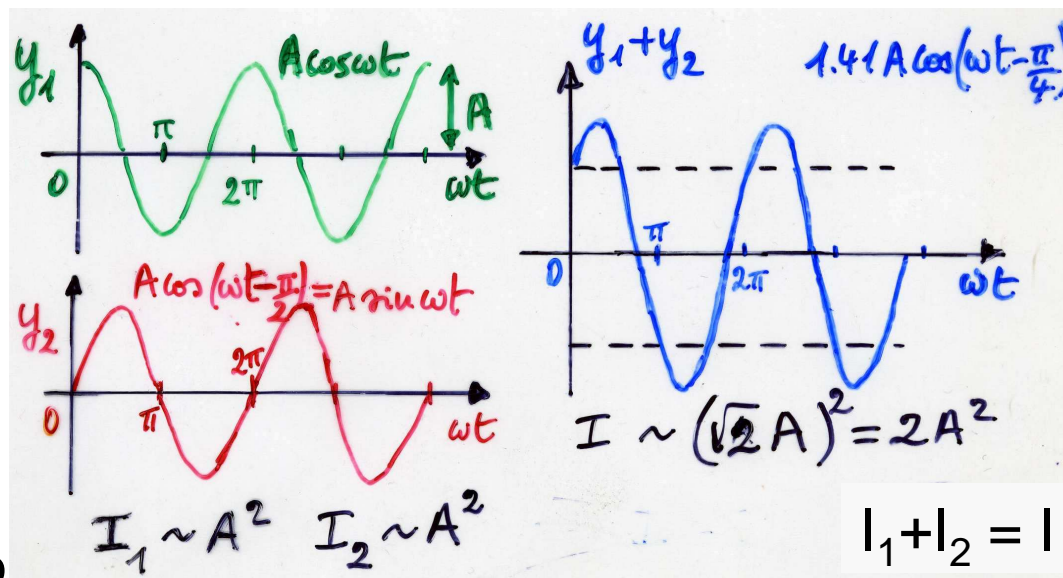 y₁
A cos ωt
A
π
0
2π
ωt
A cos(ωt-π/2)=A sin ωt
y₂
2π
0
π
ωt
I₁ ~ A² I₂ ~ A²
y₁+y₂ 1.41 A cos(ωt-π/4)
π
0
2π
ωt
I ~ (√2A)² = 2A²
I₁+I₂ = I